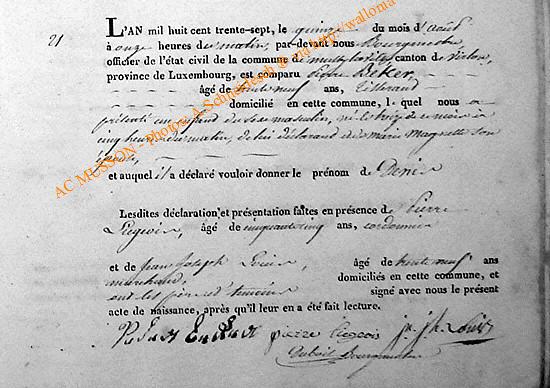 21
L'AN mil huit cent trente-sept, le quinze du mois d'août
à onze heures du matin, par-devant nous Bourgmestre
officier de l'état civil de la commune de canton de
province de Luxembourg, est comparu Pierre Beker,
âgé de trente neuf ans, Tisserand
domicilié en cette commune, lequel nous a
présenté un enfant du sexe masculin, né le treize de ce mois à
cinq heures du matin, de lui déclarant et de marie magnette son
épouse,
et auquel il a déclaré vouloir donner le prénom de Denis
Lesdites déclaration et présentation faites en présence de Pierre
Liegeois, âgé de cinquante cinq ans, cordonnier
et de Jean Joseph Louis, âgé de trente neuf ans
marchand, domiciliés en cette commune, et
ont les père et témoins signé avec nous le présent
acte de naissance, après qu'il leur en a été fait lecture.
pierre liegeois j. jh. Louis
Bourgmestre
AC MUSSON - Photos A. Schneidesch @ via http://wallonia